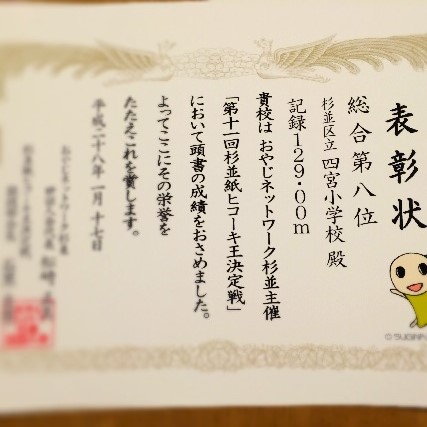 表彰状
総合第八位
杉並区立 四宮小学校 殿
記録129.00m
貴校は おやじネットワーク杉並主催
「第十一回杉並紙ヒコーキ王決定戦」
において頭書の成績をおさめました。
よってここにその栄誉を
たたえこれを賞します。
平成二十八年一月十七日
おやじネットワーク杉並